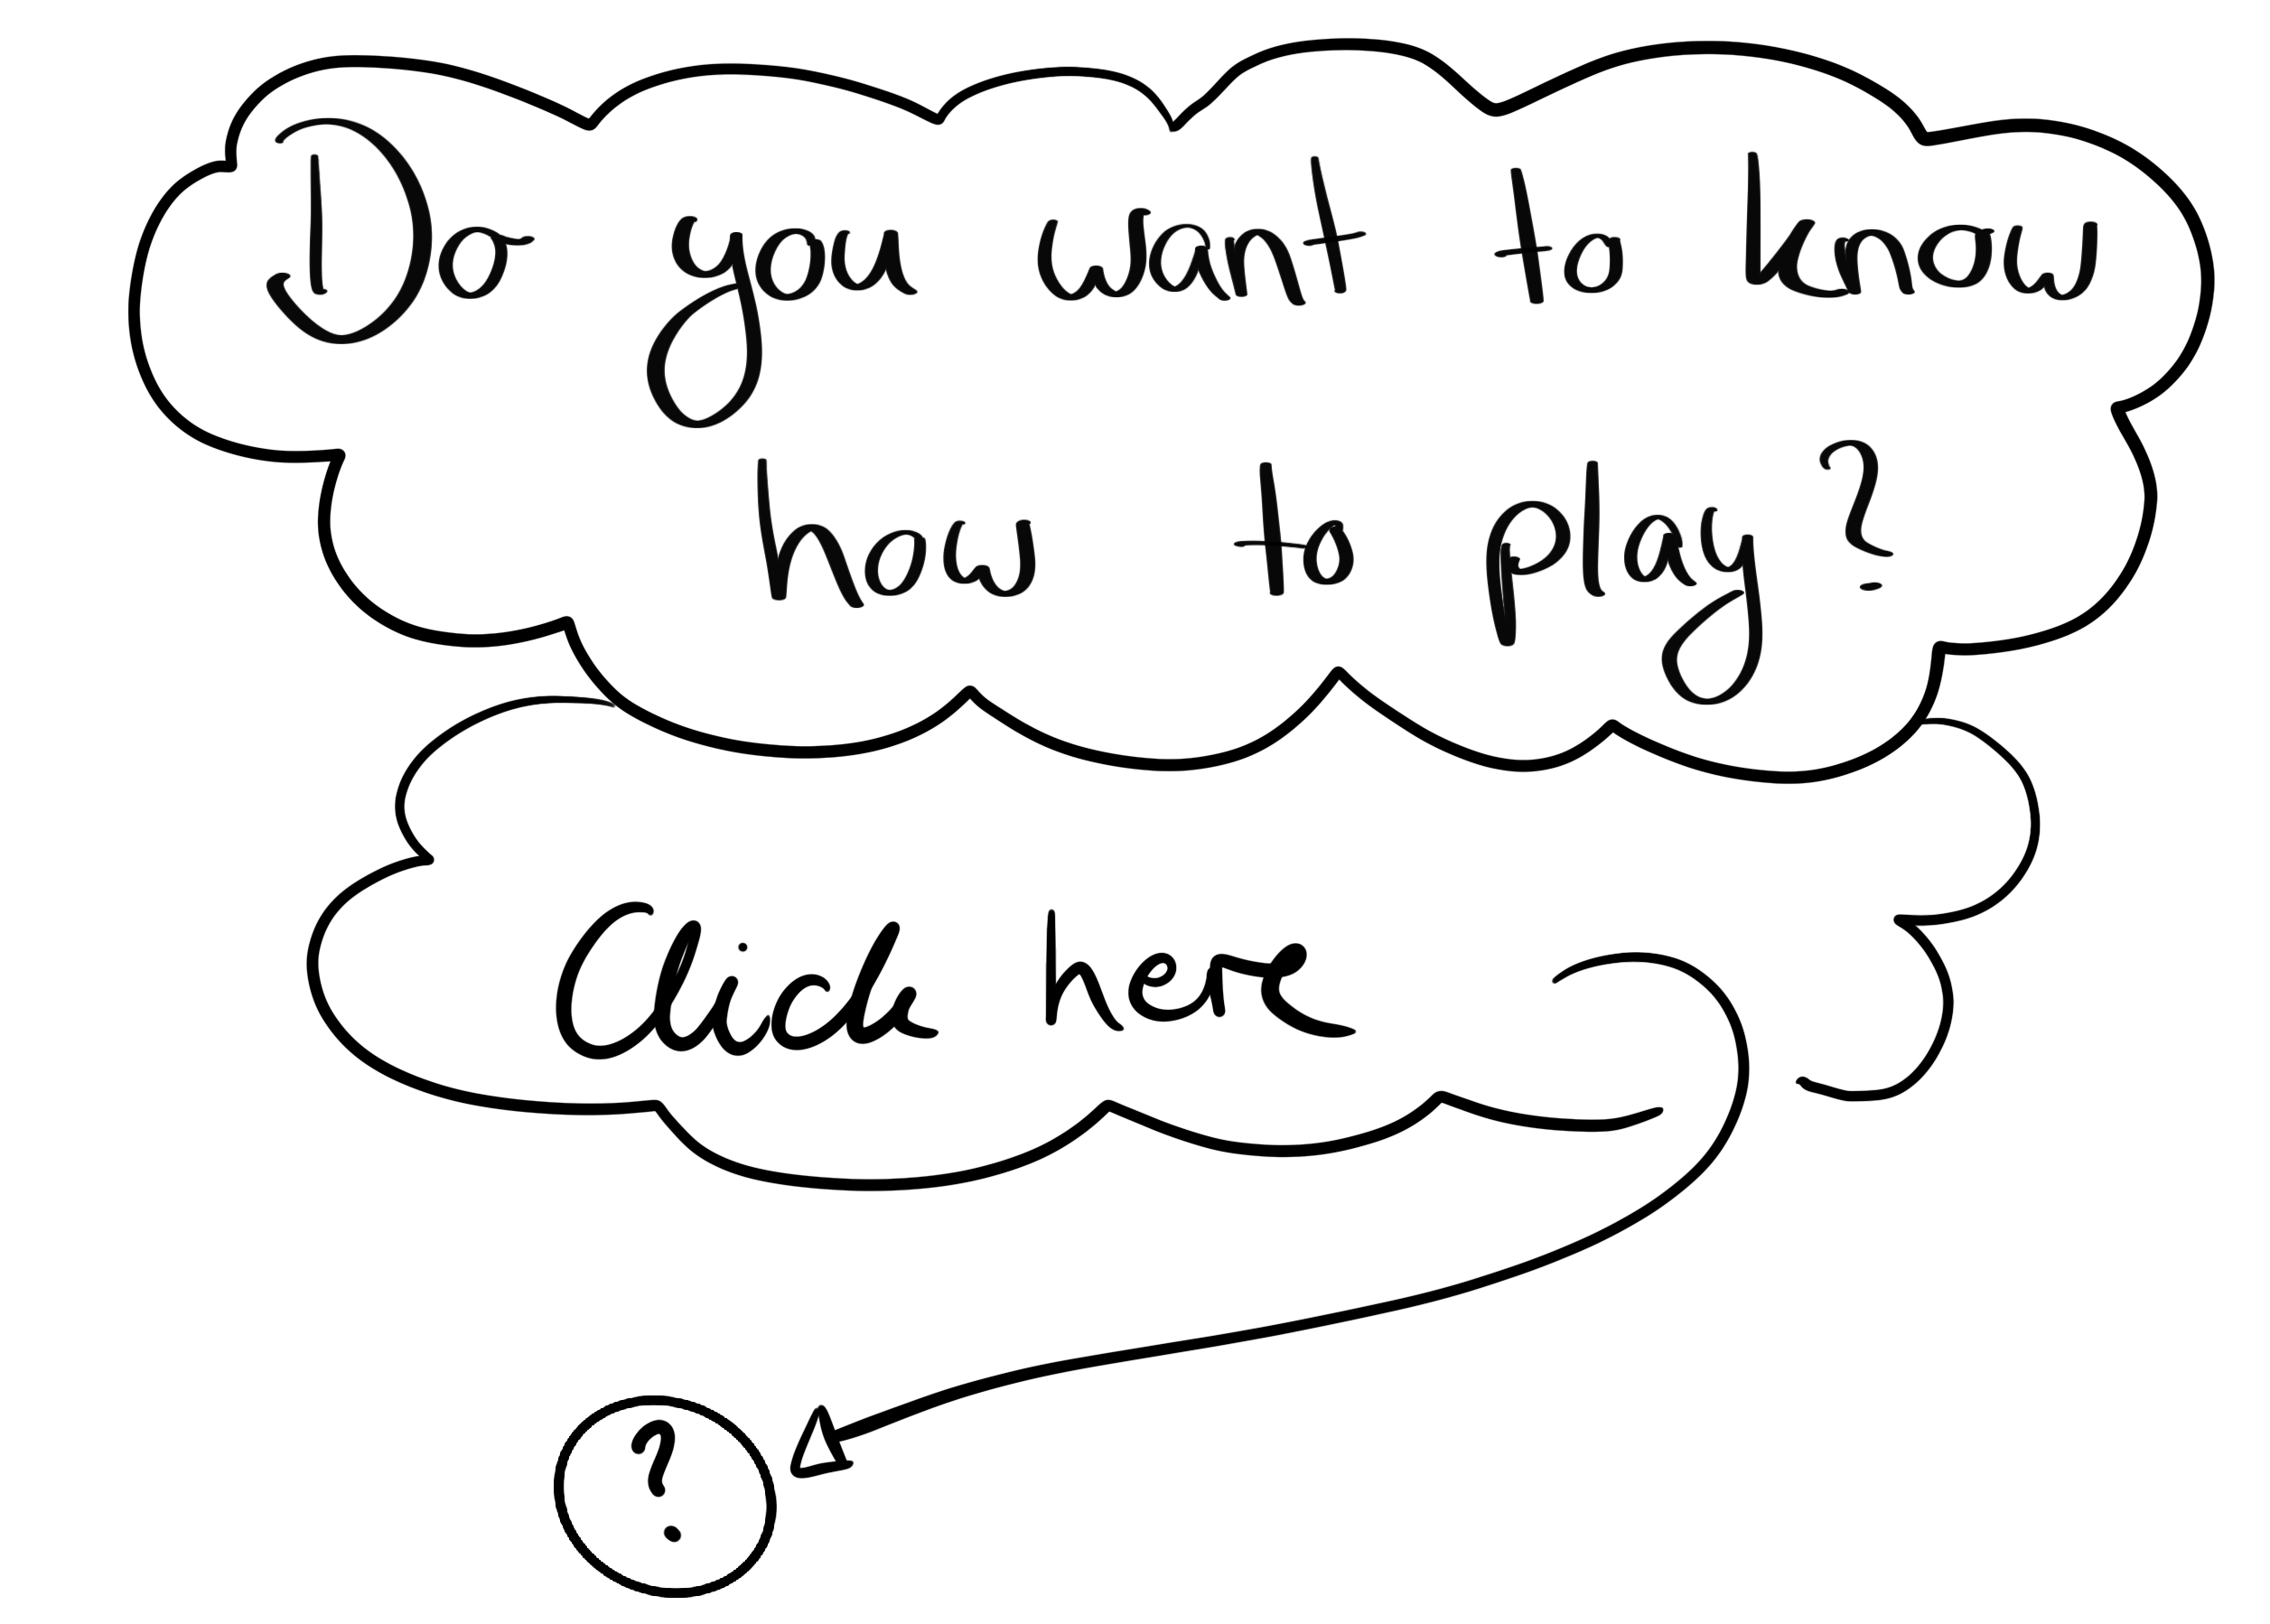 Do you want to know
how to play?
Click here
?